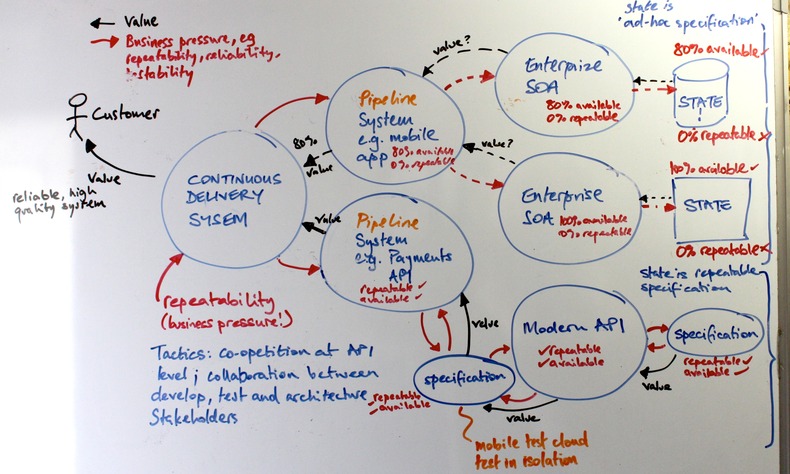 Value
Business pressure, eg
repeatability, reliability,
stability
Customer
Value
reliable, high
quality system
CONTINUOUS
DELIVERY
SYSEM
repeatability
(business pressure!)
Tactics: co-opetition at API
level; collaboration between
develop, test and architecture
Stakeholders
80%
value
value
Pipeline
System
e.g. mobile
app 80% available
0% repeatable
Pipeline
System
e.g. Payments
API
repeatable ✓
available ✓
value?
value?
Enterprize
SOA
80% available
0% repeatable
Enterprise
SOA 100% available
0% repeatable
state is
'ad-hoc specification'
80% available ✓
STATE
0% repeatable x
100% available ✓
STATE
0% repeatable x
state is repeatable
specification
value
specification
repeatable
available
mobile test cloud
test in isolation
Modern API
✓ repeatable
✓ available
value
value
specification
repeatable ✓
available ✓